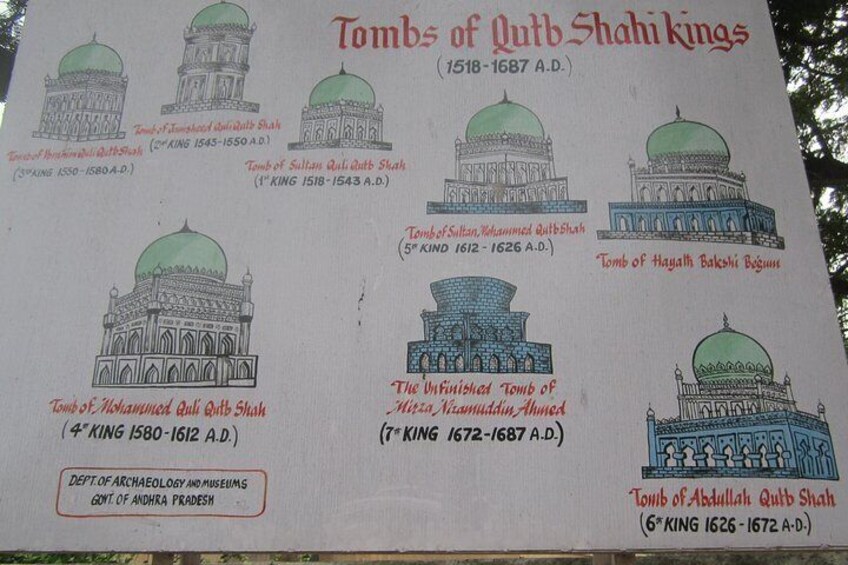 Tombs of Qutb Shahi kings
(1518-1687 A.D.)
Tomb of Ibrahim Quli Qutb Shah
(3rd KING 1550-1580 A.D.)
Tomb of Jamsheed Quli Qutb Shah
(2nd KING 1543-1550 A.D.)
Tomb of Sultan Quli Qutb Shah
(1st KING 1518-1543 A.D.)
Tomb of Sultan Mohammed Qutb Shah
(5th KIND 1612-1626 A.D.)
Tomb of Hayath Bakshi Begum
Tomb of Mohammed Quli Qutb Shah
(4th KING 1580-1612 A.D.)
The Unfinished Tomb of
Mirza Nizamuddin Ahmed
(7th KING 1672-1687 A.D.)
Tomb of Abdullah Qutb Shah
(6th KING 1626-1672 A.D.)
DEPT. OF ARCHAEOLOGY AND MUSEUMS
GOVT. OF ANDHRA PRADESH